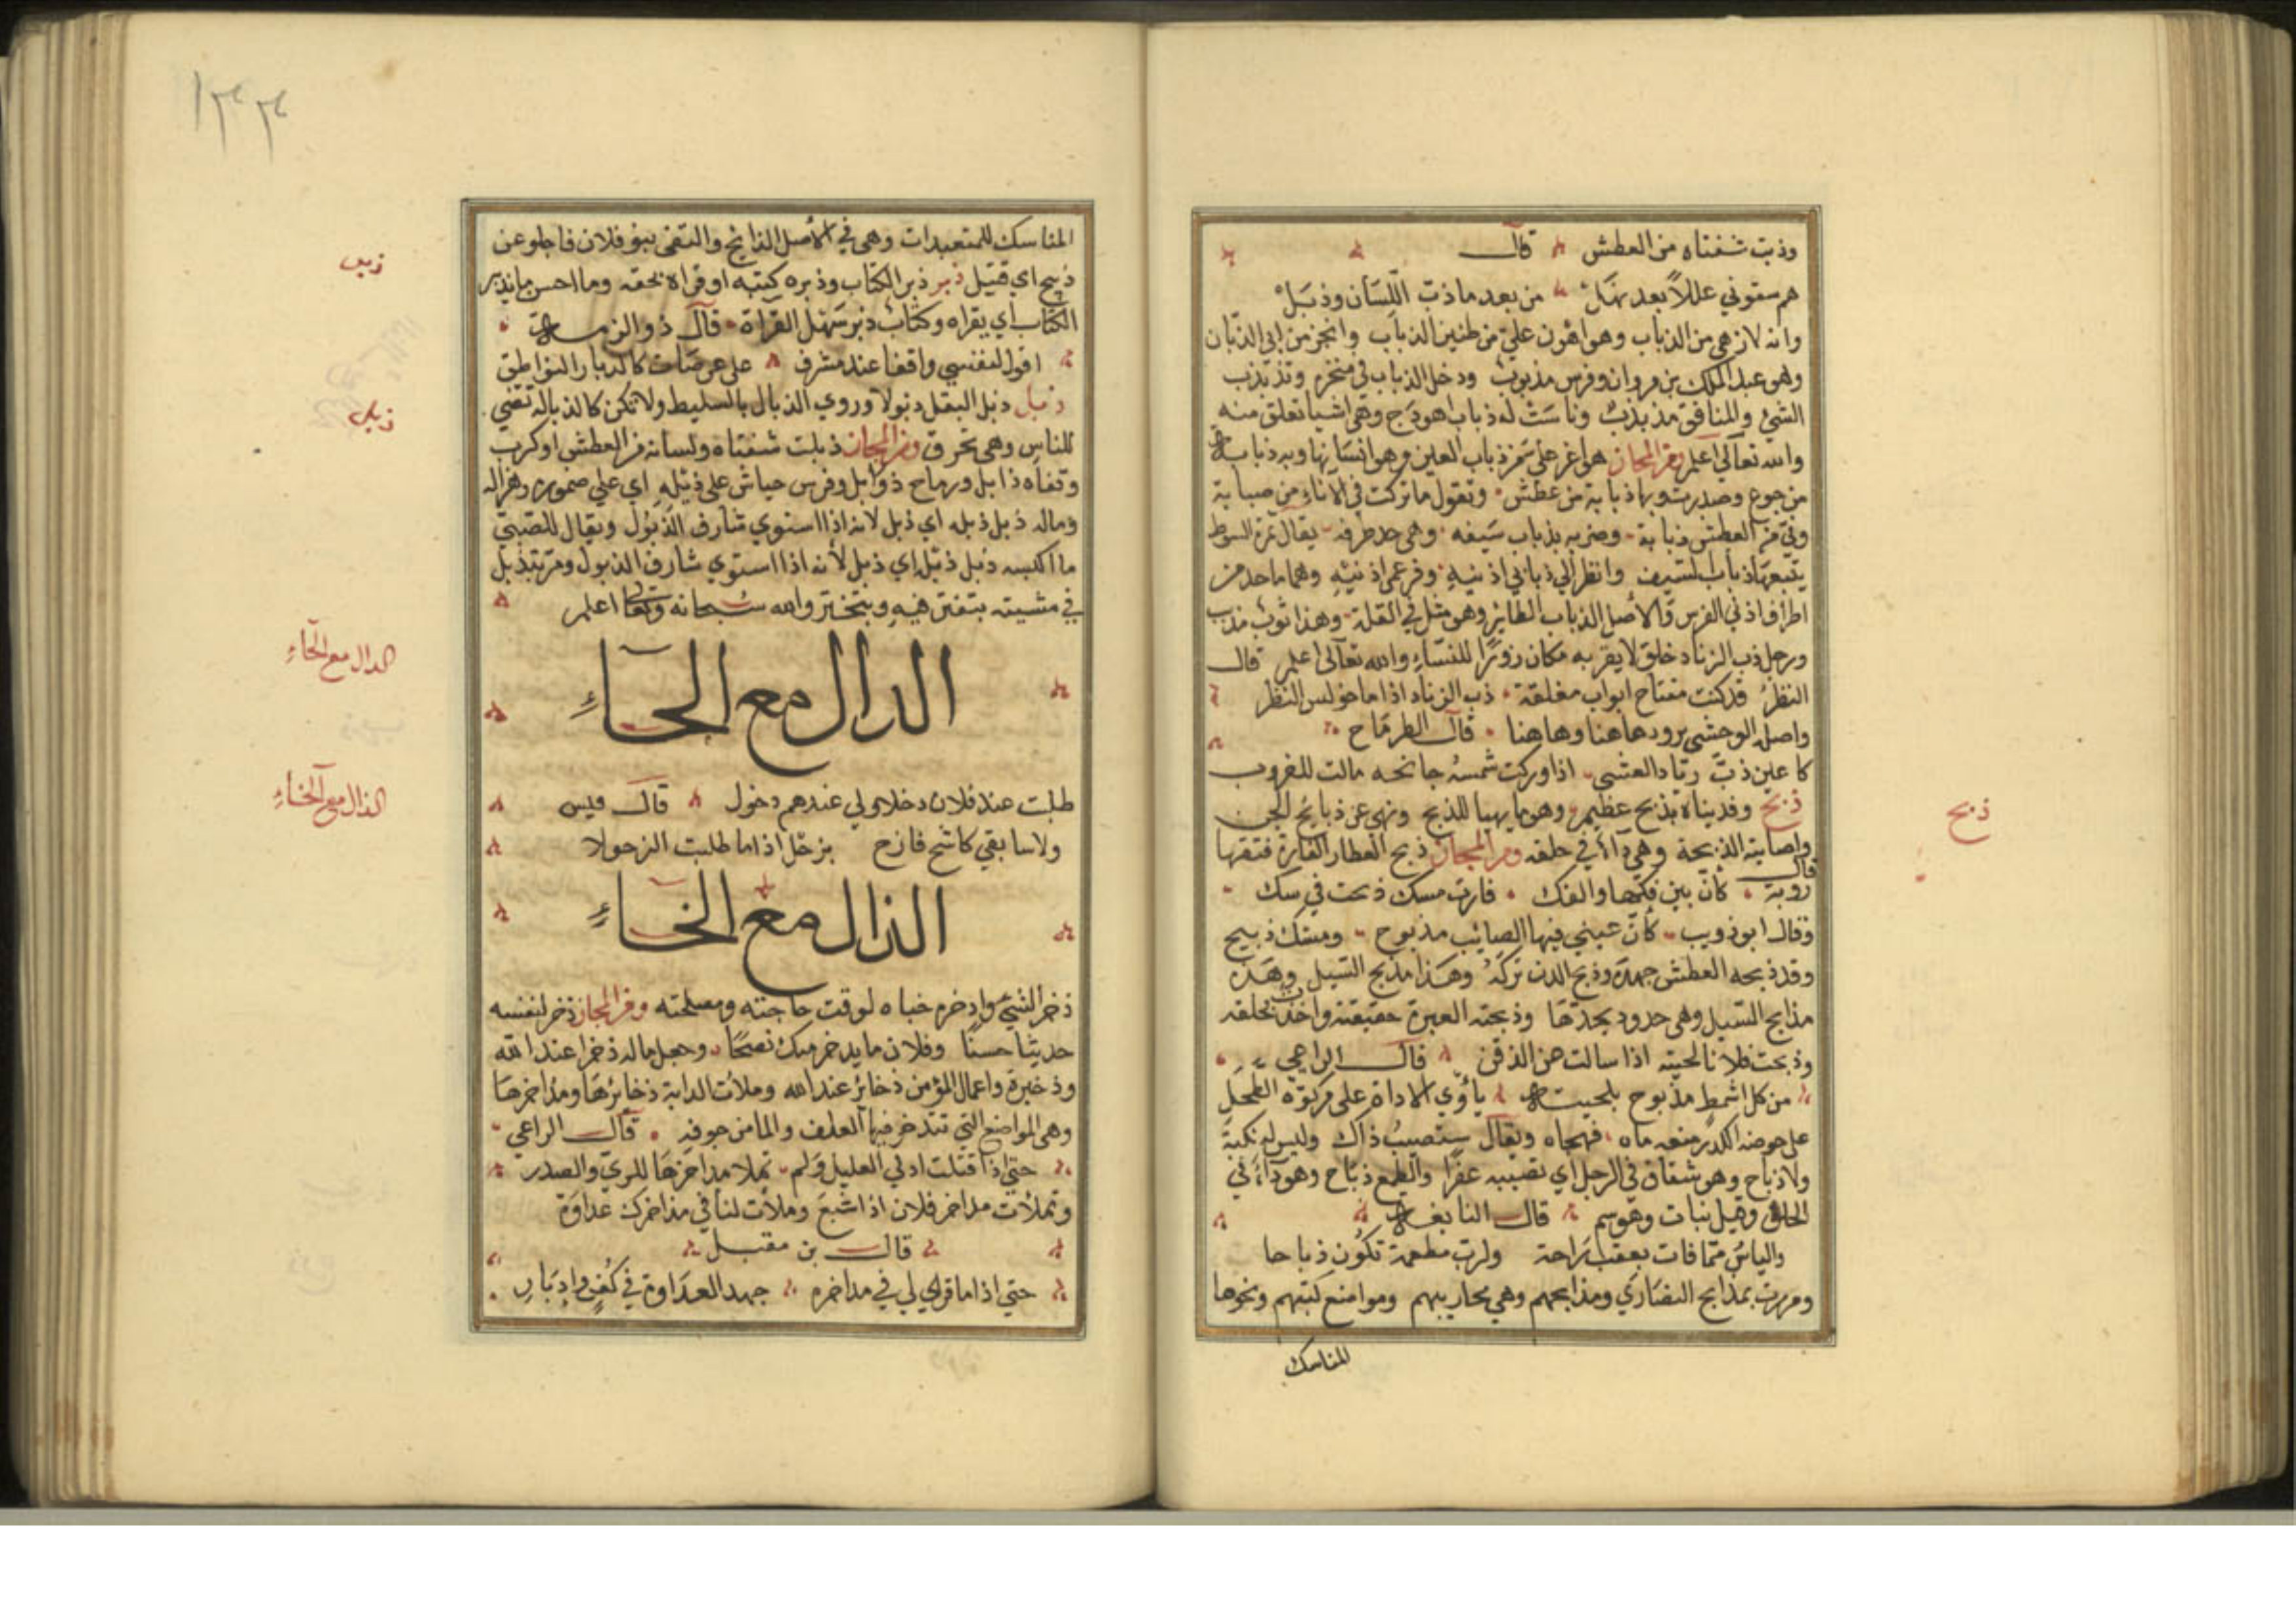 وذبت شفتاه من العطش قال
هم سقوني عللاً بعد نهل من بعد ما ذب اللسان وذبل
وانه لازهى من الذباب وهو اهون علي من طنين الذباب وانجز من ابي الذبان
وهو عبد الملك بن مروان وفرس مذبوب ودخل الذباب في منخره وتذبذب
الشيء والمنافق مذبذب وناست له ذباب اهودج وهي اشيا تعلق منه
والله تعالى اعلم ومن المجاز هو اعز علي من ذباب العين وهو انسانها وبه ذباب
من جوع وصدرت وبها ذبابة من عطش وتقول ما تركت في الاناء من صبابة
وبي من العطش ذبابة وضربه بذباب سيفه وهي حد طرفه يقال ثمرة السوط
يتبعها ذباب السيف وانظر الي ذبابي اذنيه وفرعي اذنيه وهما ما حد من
اطراف اذني الفرس والاصل الذباب الطائر وهو مثل في القلة وهذا ثوب مذبب
ورجل ذب الزناد خلق لا يقر به مكان زورًا للنساء والله تعالى اعلم قال
النظر قد كنت مفتاح ابواب مغلقة ذب الزناد اذا ما خولس النظر
واصله الوحشي يرود هاهنا وهاهنا قال الطرماح
كاعين ذب رياد العشي اذا وركت شمسه جانحه مالت للغروب
ذبح وفديناه بذبح عظيم وهو ما يهيا للذبح ونهي عن ذبايح الجن
واصابته الذبحة وهي داأ في حلقه ومن المجاز ذبح العطار الفارة فتقها
قال
روبة كان بين فكها والفك فارت مسك ذبحت في سك
وقال ابو ذويب كأن عيني فيها الصائب مذبوح ومسك ذبيح
وقد ذبحه العطش جهده وذبح الدن تركه وهذا مذبح السيل وهذه
مذابح السيل وهي حدود يحدها وذبحته العبرة حقيقته واخذت بحلقه
وذبحت فلانا لحيته اذا سالت من الذقن قال الراعي
من كل اشمط مذبوح بلحيته يأوي الاداة على مركوه الطحل
على حوضه الكدر منعه ماه فهجاه ويقال ستصيب ذاك وليس له نكبة
ولا ذباح وهو شقاق في الرجل اي نصيبه عفوًا والطمع ذباح وهو داأ في
الحلق وقيل نبات وهو سم قال النابغة
والياس مما فات يعقب راحة ولرب مطعمة تكون ذباحا
ومررت بمذابح النصاري ومذابحهم وهي محاريبهم ومواضع كتبهم ونحوها
المناسك
ذبح
١٣٣
المناسك للمتعبدات وهي في الاصل الذابح والتقى بنو فلان فاجلو عن
ذبيح اي قتيل ذبر ذبر الكتاب وذبره كتبه او قراه بخفة وما احسن ما يذبر
الكتاب اي يقراه وكتاب ذبر سهل القراة قال ذو الرمة
اقول لنفسي واقفا عند مشرف على عرصات كالذبار النواطق
ذبل ذبل البقل ذبولا وروي الذبال بالسليط ولا تكن كالذباله تضي
للناس وهي تحرق ومن المجاز ذبلت شفتاه ولسانه من العطش او كرب
وقناه ذابل ورماح ذوابل وفرس جياش على ذبله اي علي ضموره وهزاله
وماله ذبل ذبله اي ذبل لانه اذا استوي شارف الذبول ويقال للصبي
ما اكيسه ذبل ذبله اي ذبل لأنه اذا استوي شارف الذبول ومر يتذبل
في مشيته يتفتر فيه ويتبختر والله سبحانه وتعالى اعلم
الدال مع الحاء
طلبت عند فلان دخلا ولي عندهم دخول قال قيس
ولا سابقي كاشح فازح بزحل اذا ما طلبت الزحولا
الذال مع الخاء
ذخر الشيء وادخره خباه لوقت حاجته ومصلحته ومن المجاز ذخر لنفسه
حديثا حسنًا وفلان ما يدخر منك نصحًا وجعل ماله ذخرا عند الله
وذخيرة واعمال المؤمن ذخائر عند الله وملأت الدابة ذخائرها ومذاخرها
وهي المواضع التي تدخر فيها العلف والما من جوفه قال الراعي
حتي اذا قتلت ادني الغليل ولم تملا مذاخرها للري والصدر
وتملأت مذاخر فلان اذا شبع وملأت لنا في مذاخرك عداوة
قال بن مقبل
حتي اذا ما قراي لي في مذاخره جهد العداوة في كفن وادبار
ذبر
ذبل
الدال مع الحاء
الذال مع الخاء